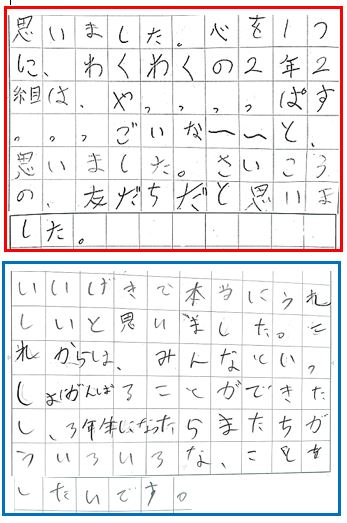 思いました。心を1つ
に、わくわくの2年2
組は、や、、、、ぱす
。。、ごいな〜〜と、
思いました。さいこう
の、友だちだと思いま
した。
いいげきで本当にうれ
しいと思いました。こ
れからは、みんなといっ
しょにがんばることができた
し、3年生になったらまたちが
ういろいろな、ことを
したいです。